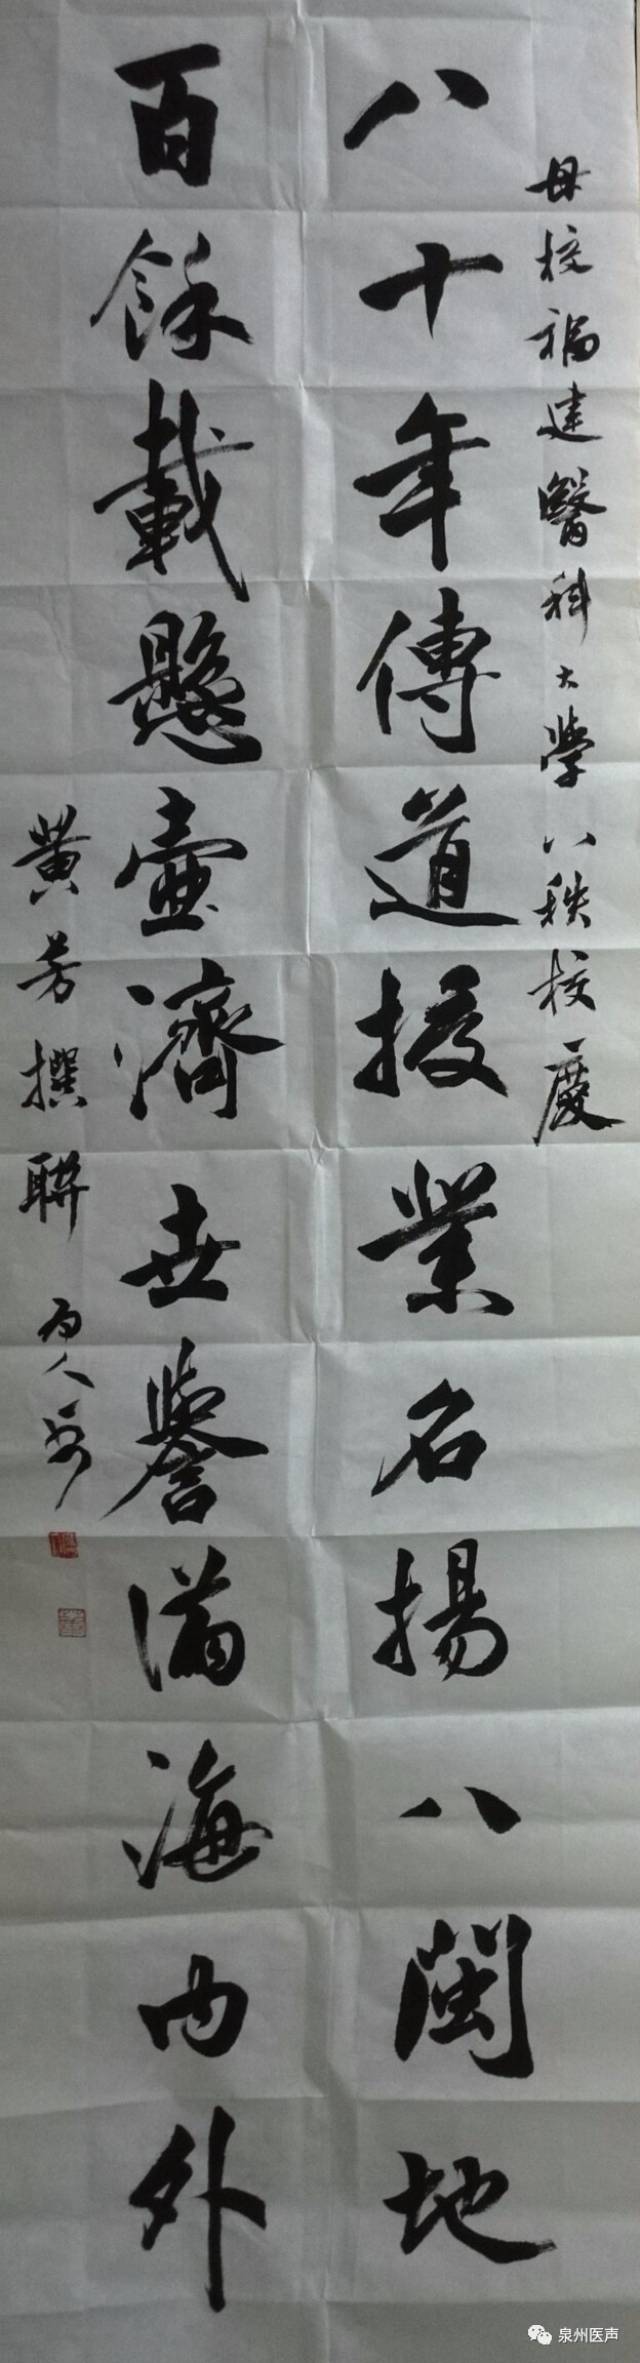 母校福建醫科大學八秩校慶
八十年傳道授業名揚八閩地
百餘載懸壺濟世譽滿海內外
黄芳撰聯
泉州医声